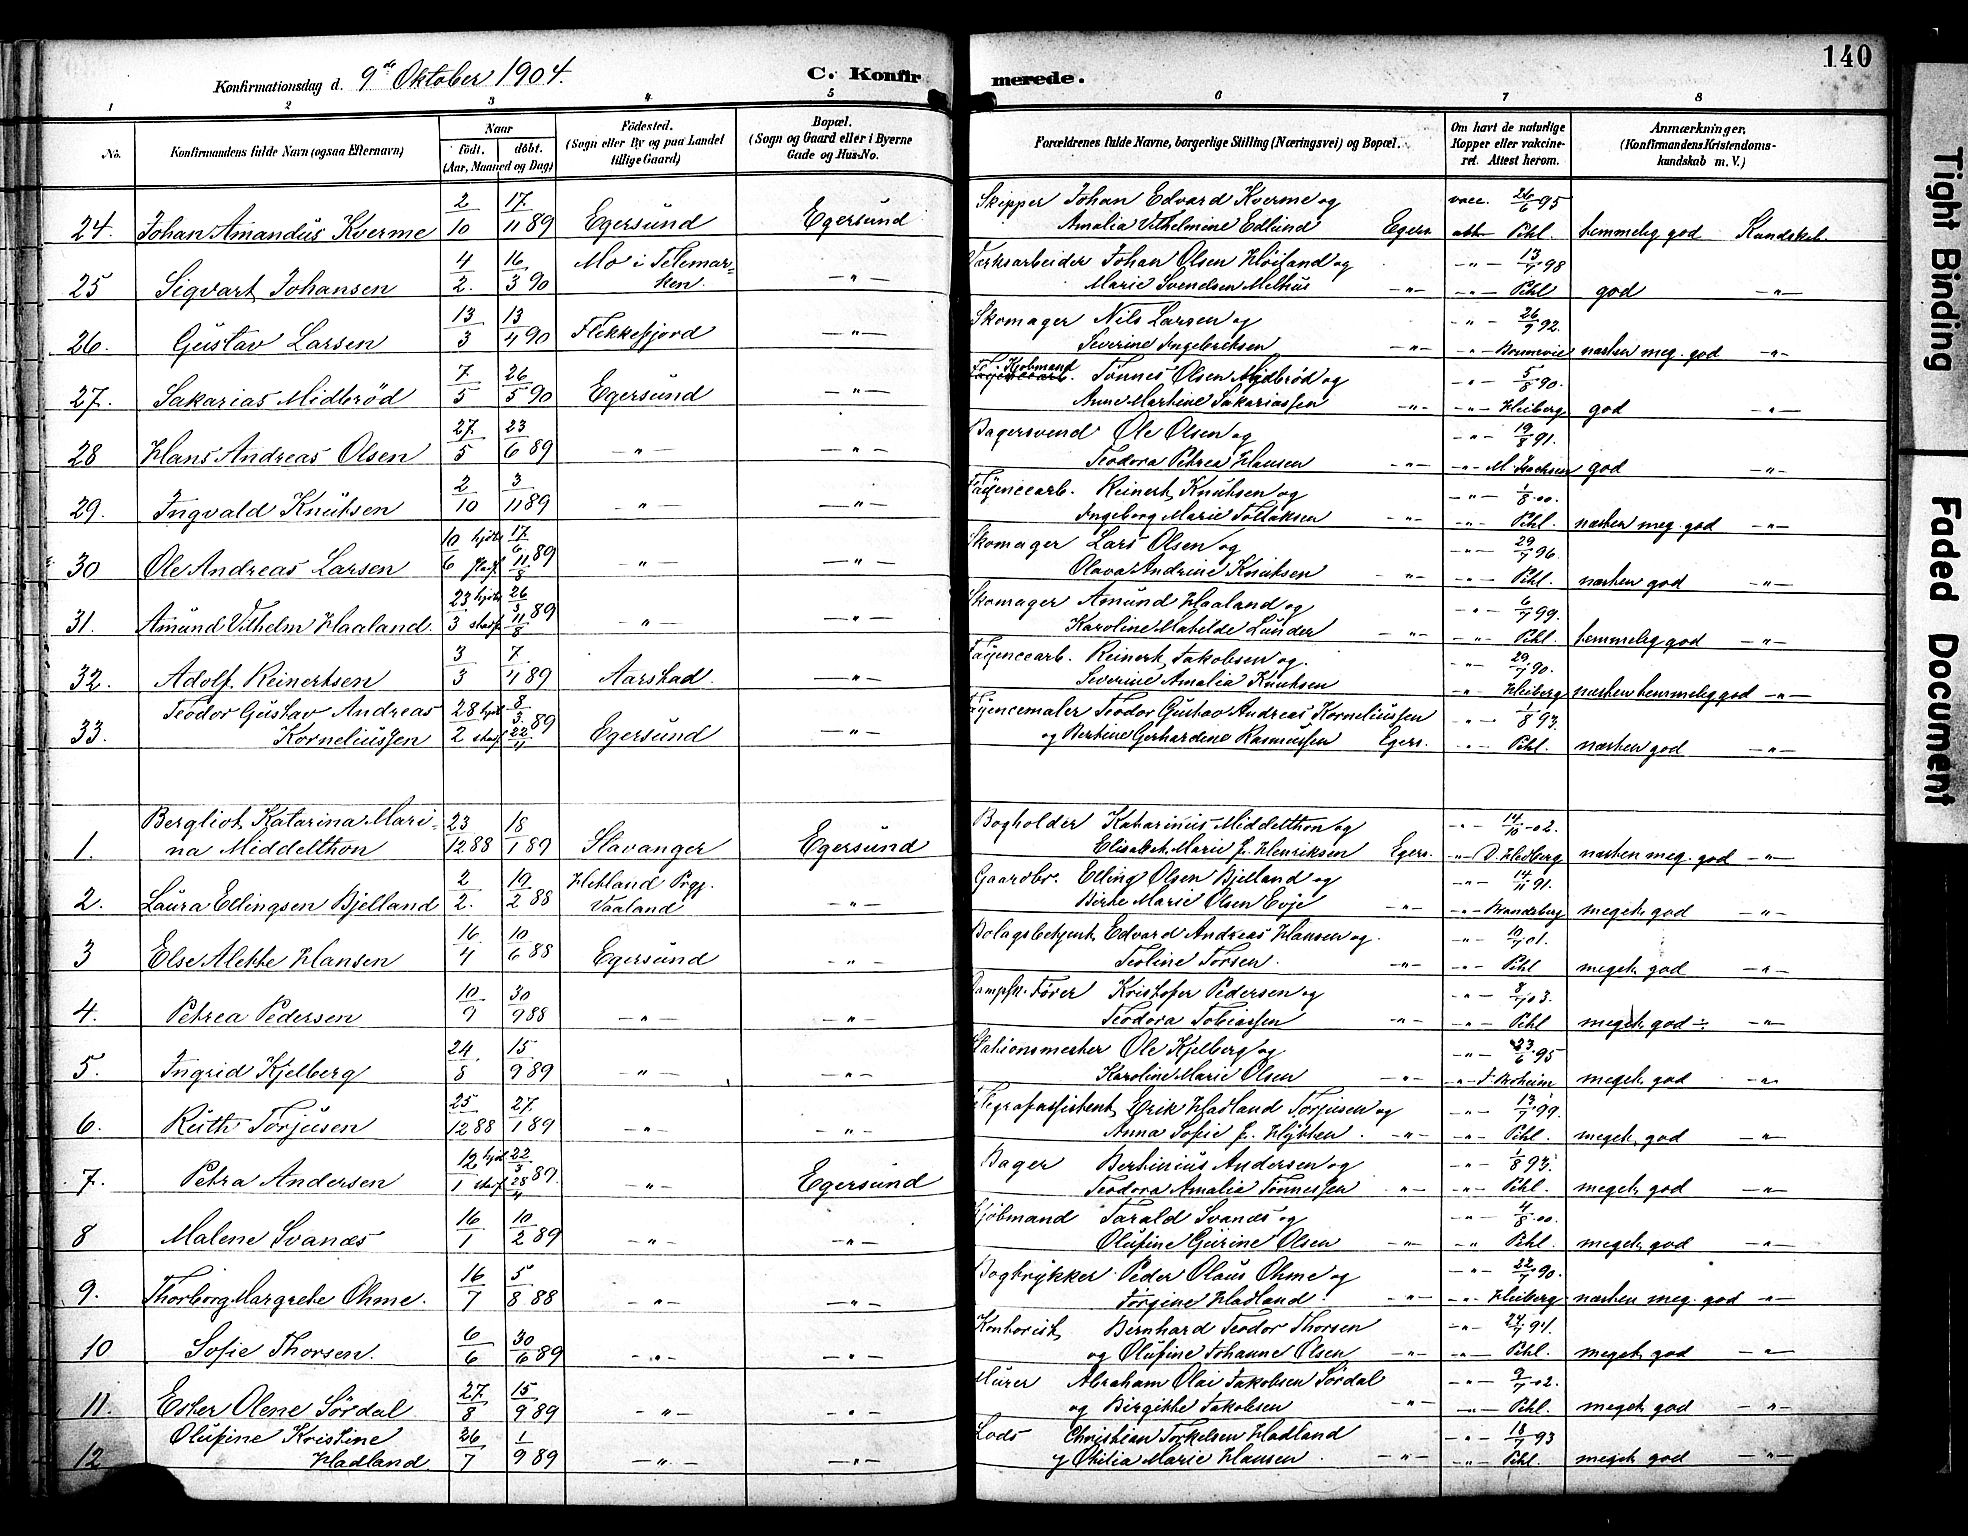 140
Konfirmationsdag d. 9de Oktober 1904.
C. Konfirmerede.
1 2 3 4 5 6 7 8
No. Konfirmandens fulde Navn (ogsaa Efternavn) Naar födt. döbt. (Aar, Maaned og Dag) Födested. (Sogn eller By og paa Landet tillige Gaard) Bopæl. (Sogn og Gaard eller i Byerne Gade og Hus-No. Forældrenes fulde Navne, borgerlige Stilling (Næringsvei) og Bopæl. Om havt de naturlige Kopper eller vakcineret. Attest herom. Anmærkninger. (Konfirmandens Kristendomskundskab m. V.)
24. Johan Amandus Kverme 2/10 17/11 89 Egersund Egersund Skipper Johan Edvard Kverme og vacc. 26/6 95
Amalia Vilhelmine Edlund Egers. att. Pihl. temmelig god Kundskab.
25 Sigvart Johansen 4/2. 16/3 90 Mo i Telemarken. -"- Værksarbeider Johan Olsen Høiland og -"- 13/7 98
Marie Svendsen Melhus -"- -"- Pihl god -"-
26. Gustav Larsen 13/3 13/4 90 Flekkefjord -"- Skomager Nils Larsen og -"- 26/9 92.
Severine Ingebriksen -"- -"- næsten meg. god -"-
27. Sakarias Midbrød 7/5 26/5 90 Egersund -"- Fr. Kjøbmand Tønnes Olsen Midbrød og -"- 5/8 90.
Anne Martine Sakariassen -"- -"- Heiberg god -"-
28 Hans Andreas Olsen 27/5 23/6 89 -"- -"- Bagersvend Ole Olsen og -"- 19/8 91.
Teodora Petrea Hansen -"- -"- M. Isachsen god -"-
29. Ingvald Knutsen 2/10 3/11 89 -"- -"- Fayencearb. Reinert Knutsen og -"- 1/8 00.
Ingeborg Marie Tollaksen -"- -"- Pihl. næsten meg. god -"-
30 Ole Andreas Larsen 10/6 hjdt. stadf. 17/6 11/8 89 -"- -"- Skomager Lars Olsen og -"- 29/7 96.
Olava Andrine Knutsen -"- -"- Pihl. næsten god -"-
31. Amund Vilhelm Haaland. 23/3 hjdt. stadf. 26/3 11/8 89 -"- -"- Skomager Amund Haaland og -"- 6/7 99.
Karoline Matilde Lunder -"- -"- Pihl. temmelig god -"-
32. Adolf Reinertsen 3/3 7/4 89 Aarstad. -"- Fayencearb. Reinert Jakobsen og. -"- 29/7 90.
Severine Amalia Knutsen -"- Heiberg næsten temmelig god -"-
33. Teodor Gustav Andreas Korneliussen 28/2 hjdt. stadf. 8/3 22/4 89 Egersund -"- Fayencemaler Teodor Gustav Andreas Korneliussen -"- 1/8 93.
og Bertine Gerhardine Rasmussen Egers. -"- Pihl. næsten god -"-
1. Bergliot Katarina Marina Middelthon 23/12 88 18/1 89 Stavanger Egersund Bogholder Katharinus Middelthon og -"- 14/10 02.
Elisabet Marie f. Henriksen Egers. -"- næsten meg. god -"-
2. Laura Ellingsen Bjelland 2/2. 19/2 88 Hetland Prgj. Vaaland -"- Gaardbr. Elling Olsen Bjelland og -"- 14/11 91.
Birte Marie Olsen Evje -"- -"- Brandsberg meget god -"-
3 Else Alette Hansen 16/4 10/6 88 Egersund -"- Bolagsbetjent Edvard Andreas Hansen og. -"- 10/7 01.
Teoline Torsen. -"- -"- Pihl meget god -"-
4. Petrea Pedersen 10/9 30/9 88 -"- -"- Dampsk. Fører Kristofer Pedersen og -"- 8/7 03.
Teodora Tobiassen -"- -"- Pihl meget god÷ -"-
5. Ingrid Kjelberg 24/8 15/9 89 -"- -"- Stationsmester Ole Kjelberg og -"- 23/6 95
Karoline Marie Olsen -"- -"- meget god -"-
6. Ruth Torjusen 25/12 88 27/1 89 -"- -"- Telegrafassistent Erik Hadland Torjusen og -"- 13/7 99.
Anna Sofie f. Hytten. -"- -"- Pihl. meget god -"-
7. Petra Andersen 12/1 hjdt. stadf. 22/3 28/4 89. -"- Egersund Bager Bertinius Andersen og -"- 1/8 93.
Teodora Amalia Tønnessen -"- -"- Pihl. meget god -"-
8 Malene Svanæs 16/1 10/2 89 -"- -"- Kjøbmand Tarald Svanæs og -"- 4/8 00.
Olufine Gurine Olsen -"- -"- Pihl. meget god -"-
9. Thorborg Margrete Ohme. 16/7 5/8 88 -"- -"- Bogtrykker Peder Olaus Ohme og -"- 22/7 90.
Torgine Hadland. -"- -"- Heiberg næsten meg. god -"-
10 Sofie Thorsen. 6/6 30/6 89 -"- -"- Kontorist Bernhard Teodor Thorsen -"-
og Olufine Johanne Olsen -"- -"- Pihl. meget god -"-
11. Ester Olene Sørdal 27/8 15/9 89 -"- -"- Murer Abraham Olai Jakobsen Sørdal -"- 9/7 02.
og Birgitte Jakobsen -"- -"- Pihl. meget god -"-
12 Olufine Kristine Hadland. 26/7 1/9 89 -"- -"- Lods Christian Torkelsen Hadland -"- 18/7 93
og Otilia Marie Hansen. -"- -"- Pihl. meget god -"-
Tight Binding
Faded Document